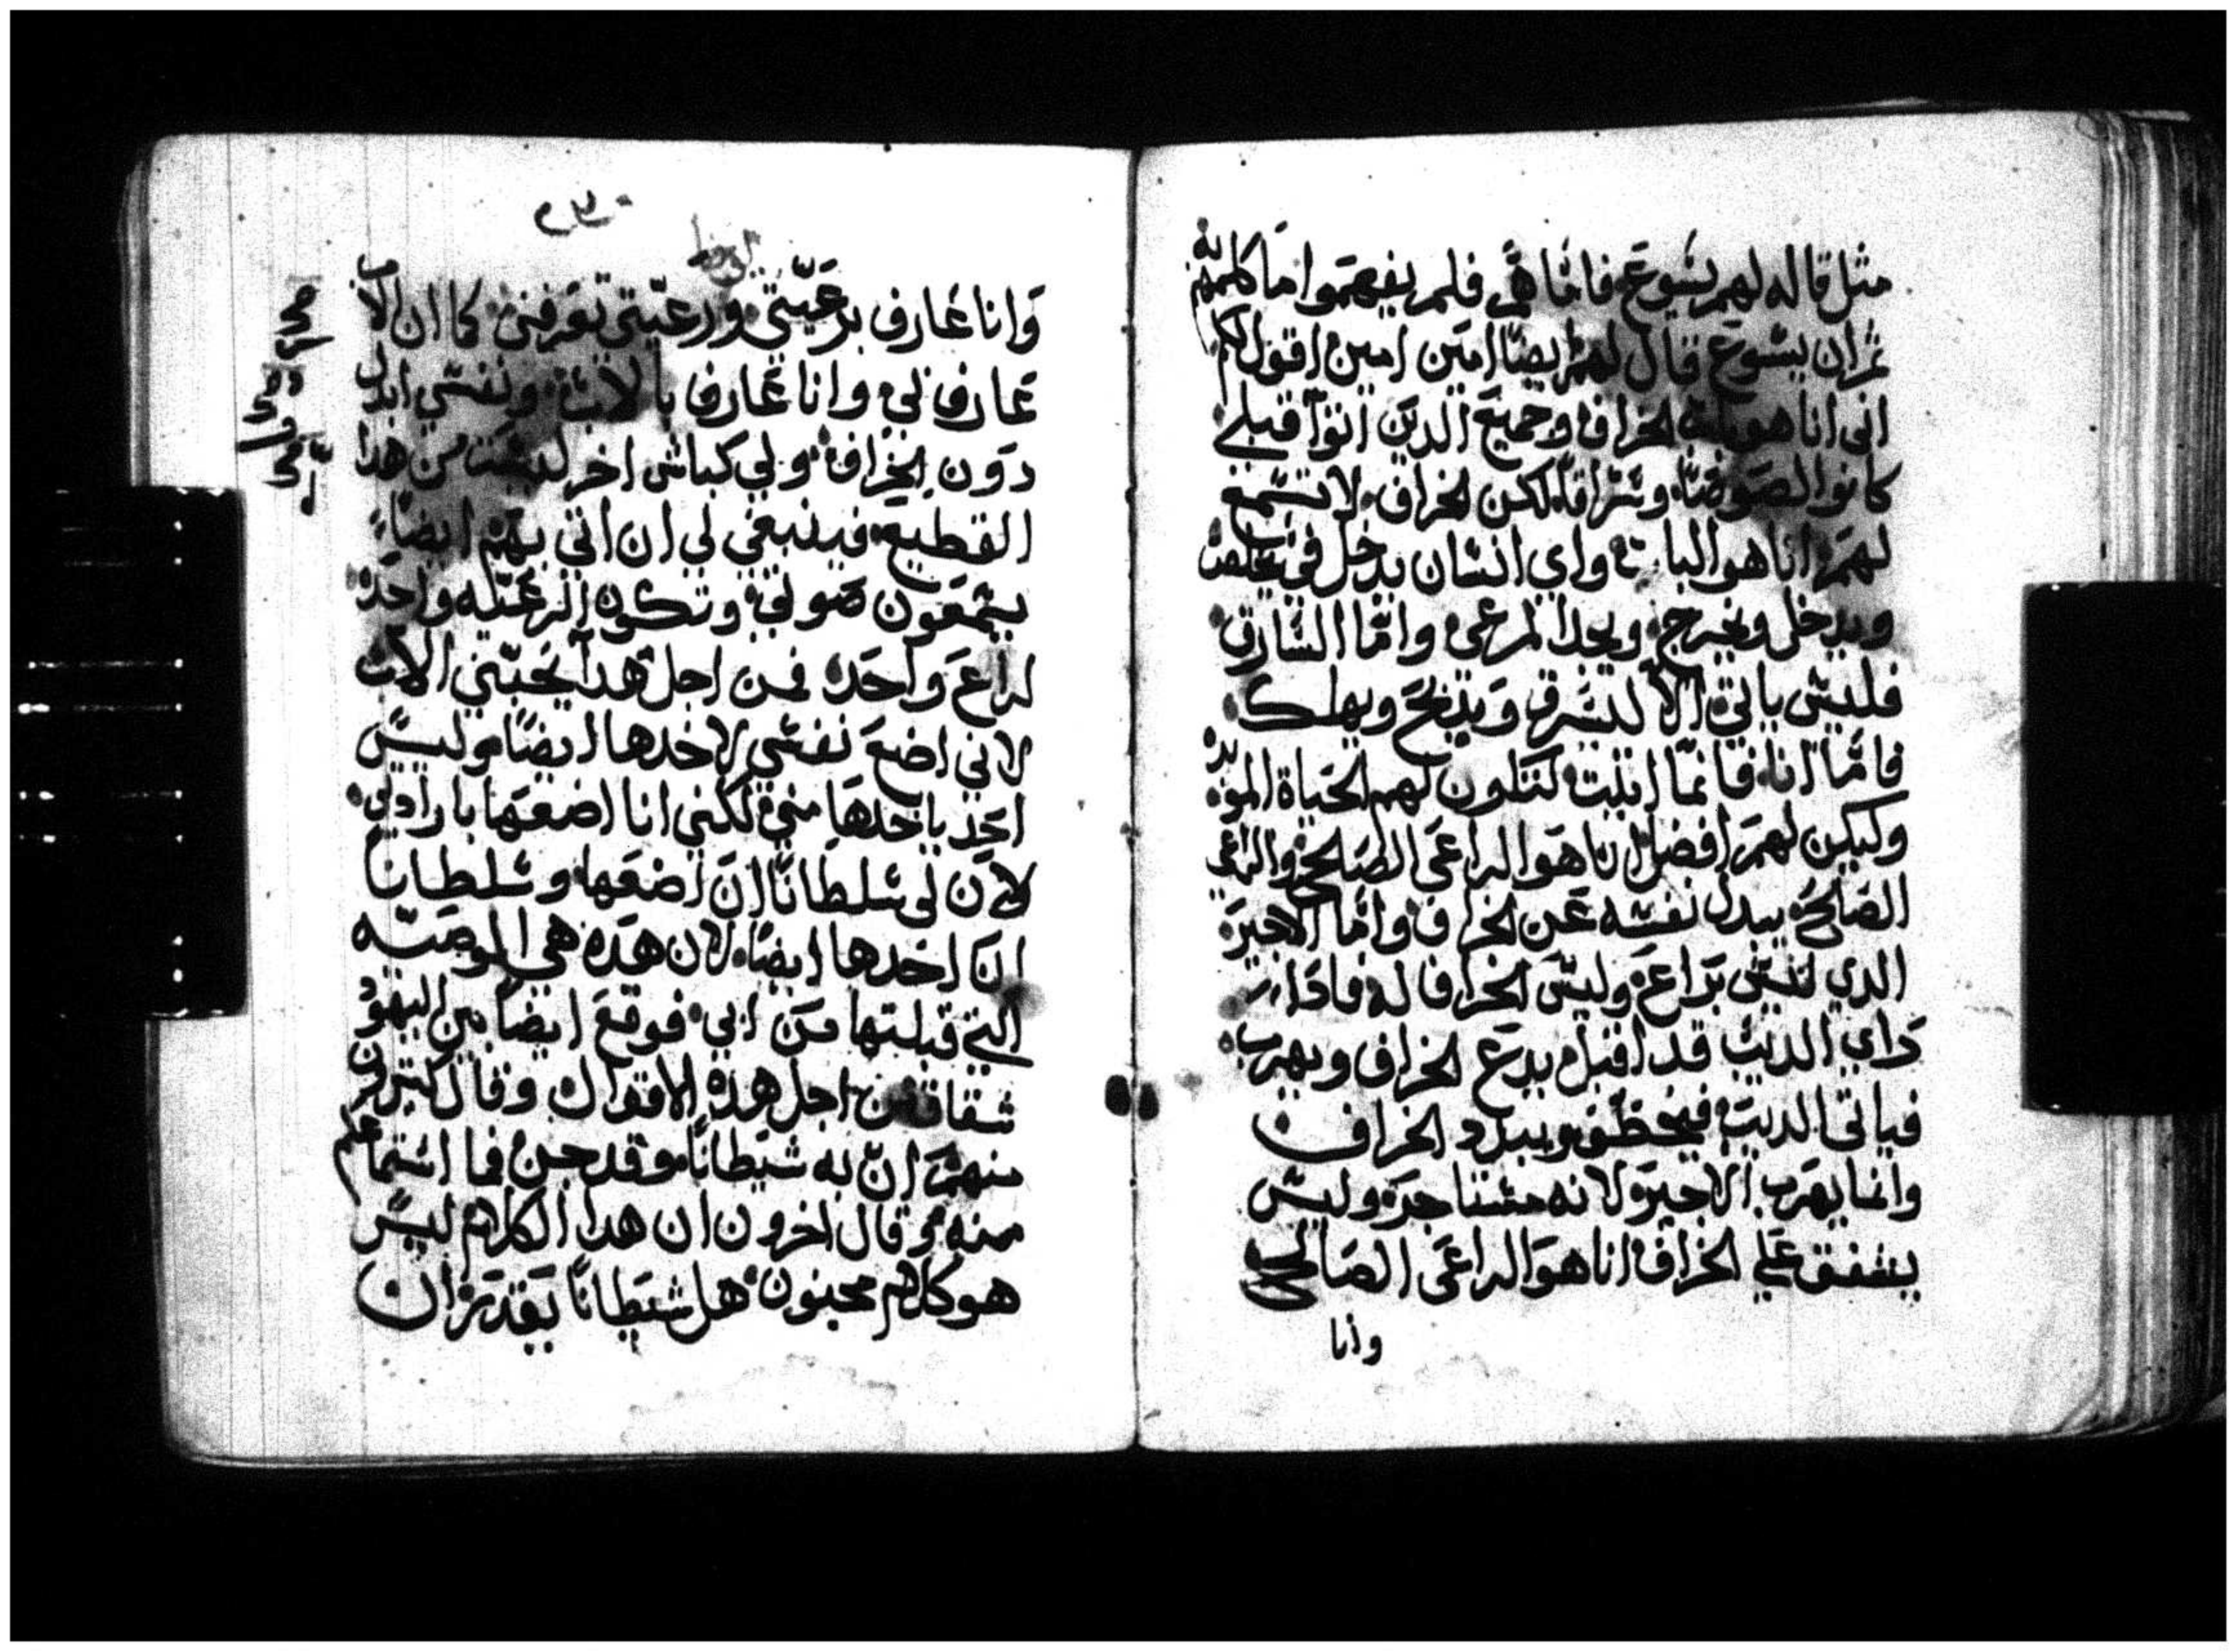 مثل قاله لهم يسوع فاما هم فلم يفهموا ما كلمهم به
ثم ان يسوع قال لهم ايضا امين امين اقول لكم
اني انا هو باب الخراف وجميع الدين اتوا قبلي
كانوا لصوصا وسراقا لكن الخراف لا تسمع
لهم انا هو الباب واي انسان يدخل في يخلص
ويدخل ويخرج ويجد المرعى واما السارق
فليس ياتي الا ليسرق ويدبح ويهلك
فاما انا فانما اتيت لتكون لهم الحياة الموبده
وليكن لهم افضل انا هو الراعي الصالح والراعي
الصالح يبدل نفسه عن الخراف واما الاجير
الدي ليس براع وليس الخراف له فادا
راي الديب قد اقبل يدع الخراف ويهرب
فياتي الديب فيخطف ويبدد الخراف
وانما يهرب الاجير لانه مستاجر وليس
يشفق علي الخراف انا هو الراعي الصالح
وانا
وانا عارف برعيتي ورعيتي تعرفني كما ان الاب
عارف بي وانا عارف بالاب ونفسي ابدل
دون الخراف ولي كباش اخر ليست من هدا
القطيع فينبغي لي ان اتي بهم ايضا
يسمعون صوتي وتكون الرعيه واحده
لراع واحد فمن اجل هدا يحبني الاب
لاني اضع نفسي لاخدها ايضا وليس
احد ياخدها مني لكني انا اضعها بارادتي
لان لي سلطانا ان اضعها وسلطانا
ان اخدها ايضا لان هده هي الوصيه
التي قبلتها من ابي فوقع ايضا بين اليهود
شقاق من اجل هده الاقوال وقال كثيرون
منهم ان به شيطانا وقد جن فما استماعكم
منه وقال اخرون ان هدا الكلام ليس
هو كلام مجنون هل شيطانا يقدر ان